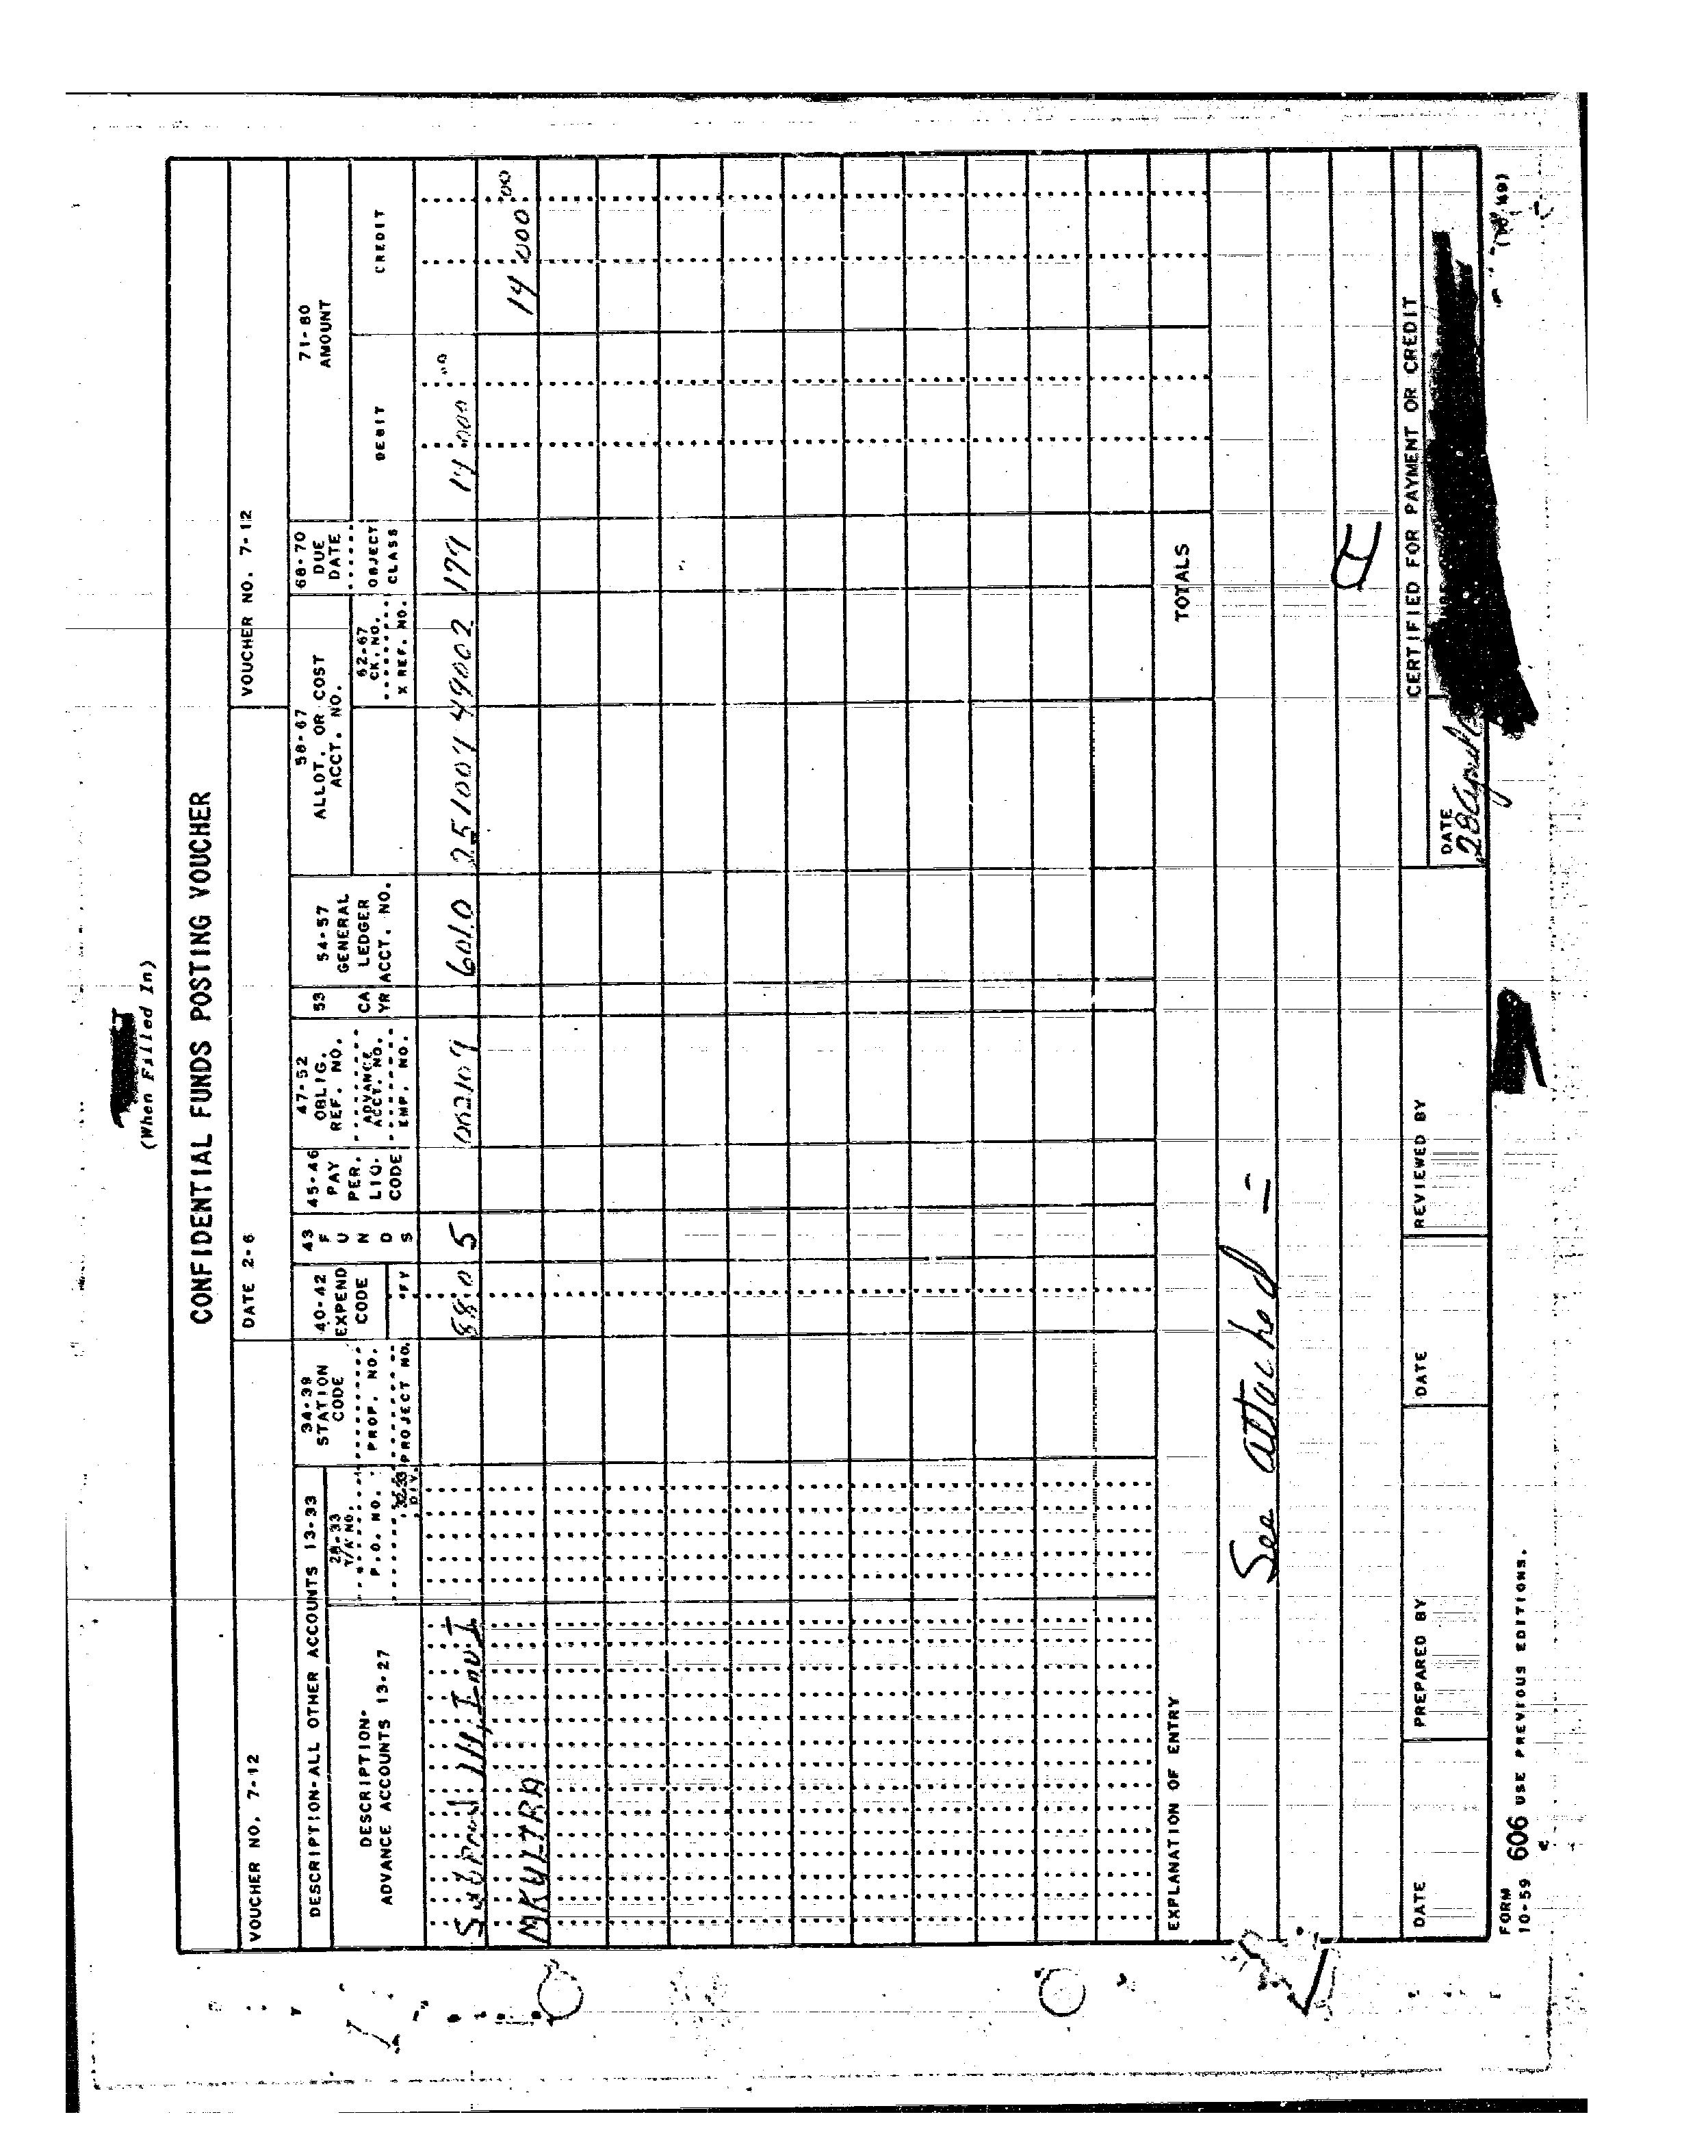 (When Filled In)
CONFIDENTIAL FUNDS POSTING VOUCHER
VOUCHER NO. 7-12
DATE 2-6
VOUCHER NO. 7-12
DESCRIPTION-ALL OTHER ACCOUNTS 13-33
DESCRIPTION-
ADVANCE ACCOUNTS 13-27
28-33
T/A NO.
P.O. NO.
DIV.
34-39
STATION
CODE
PROP. NO.
PROJECT NO.
40-42
EXPEND
CODE
FY
43
F
U
N
D
S
45-46
PAY
PER.
LIQ.
CODE
47-52
OBLIG.
REF. NO.
ADVANCE
ACCT. NO.
EMP. NO.
53
CA
YR
54-57
GENERAL
LEDGER
ACCT. NO.
58-67
ALLOT. OR COST
ACCT. NO.
62-67
CK. NO.
X REF. NO.
68-70
DUE
DATE
OBJECT
CLASS
71-80
AMOUNT
DEBIT
CREDIT
5 6010 49002
MKULTRA 14 000 00
TOTALS
EXPLANATION OF ENTRY
See attached
DATE
PREPARED BY
DATE
REVIEWED BY
CERTIFIED FOR PAYMENT OR CREDIT
DATE
28 April
FORM
10-59 606 USE PREVIOUS EDITIONS.